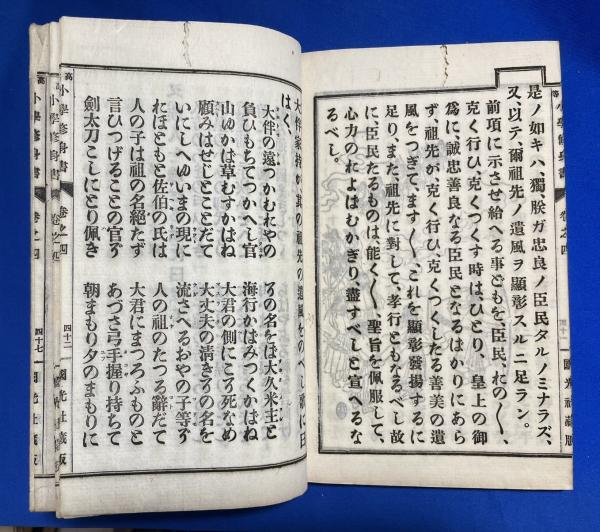 是ノ如キハ、獨朕ガ忠良ノ臣民タルノミナラズ、
又、以テ、爾祖先ノ遺風ヲ顯彰スルニ足ラン。
前項に示させ給へる事どもを、臣民、れの〳〵、
克く行ひ、克くつくす時は、ひとり、皇上の御
爲に、誠忠善良なる臣民となるばかりにあら
ず、祖先が克く行ひ、克くつくしたる善美の遺
風をつぎて、ます〳〵、これを顯彰發揚するに
足り、また、祖先に對して、孝行ともなるべし故
に、臣民たるものは能く〳〵、聖旨を佩服して、
心力のたよはむかぎり盡すべしと宣へるな
るべし。
大伴家持が、其の祖先の遺風をのべし歌に曰
はく、
大伴の遠つかむれやの
負ひもちてつかへし官
山ゆかば草むすかはね
顧みはせじとことだて
いにしへゆいまの現に
れほともと佐伯の氏は
人の子は祖の名絕たず
言ひつげることの官
劍太刀こしにとり佩き
の名をば大久米主と
海行かばみつくかばね
大君の側にこ死なめ
大丈夫の淸きの名を
流さへるおやの子等
人の祖のたつる辭だて
大君にまつろふものと
あづさ弓手握り持ちて
朝まもり夕のまもりに
小學修身書
卷之四
四十二